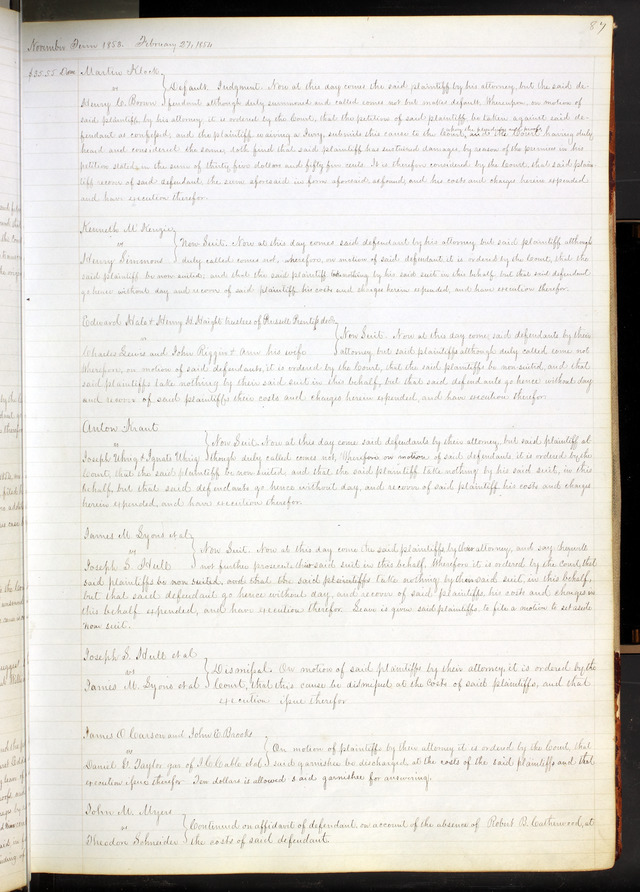 87
November Term 1853. February 27, 1854
$35.55 Dam
Martin Klock
vs
Henry C. Brown
Default. Judgment. Now at this day comes the said plaintiff by his attorney, but the said de-
fendant although duly summoned and called comes not but makes default. Thereupon, on motion of
said plaintiff by his attorney it is ordered by the Court, that the petition of said plaintiff be taken against said de-
fendant as confessed, and the plaintiff waiving a Jury, submits this cause to the Court, and the Court having duly
heard and considered the same, doth find that said plaintiff has sustained damages by reason of the premises in his
petition stated, in the sum of thirty five dollars and fifty five cents. It is therefore considered by the Court, that said plain-
tiff recover of said defendant the sum aforesaid in form aforesaid, as found, and his costs and charges herein expended
and have execution therefor.
Kenneth McKenzie
vs
Henry Simmons
Non Suit. Now at this day comes said defendant by his attorney but said plaintiff although
duly called comes not, wherefore, on motion of said defendant it is ordered by the Court, that the
said plaintiff be non suited, and that the said plaintiff take nothing by his said suit in this behalf, but that said defendant
go hence without day and recover of said plaintiff his costs and charges herein expended, and have execution therefor.
Edward Hale & Henry H. Haight trustees of Russell Prentiss
vs
Charles Lewis and John Riggin & Ann his wife
Non Suit. Now at this day come, said defendants by their
attorney, but said plaintiffs although duly called come not
Wherefore, on motion of said defendants, it is ordered by the Court, that the said plaintiffs be non suited, and that
said plaintiffs take nothing by their said suit in this behalf, but that said defendants go hence without day
and recover of said plaintiffs their costs and charges herein expended, and have execution therefor.
Anton Kraut
vs
Joseph Uhrig & Ignatz Uhrig
Non Suit. Now at this day come said defendants by their attorney, but said plaintiff al-
though duly called comes not, Wherefore on motion of said defendants it is ordered by the
Court, that the said plaintiff be non suited, and that the said plaintiff take nothing by his said suit, in this
behalf, but that said defendants go hence without day, and recover of said plaintiff his costs and charges
herein expended, and have execution therefor.
James M Lyons et al
vs
Joseph S. Hull
Non Suit. Now at this day come the said plaintiffs by their attorney, and say they will
not further prosecute their said suit in this behalf, Wherefore it is ordered by the Court, that
said plaintiffs be non suited, and that the said plaintiffs take nothing by their said suit, in this behalf,
but that said defendant go hence without day, and recover of said plaintiffs, his costs and charges in
this behalf expended, and have execution therefor. Leave is given said plaintiffs, to file a motion to set aside
non suit.
Joseph S. Hull et al
vs
James M. Lyons et al
Dismissal. On motion of said plaintiffs by their attorney, it is ordered by the
Court, that this cause be dismissed at the costs of said plaintiffs, and that
execution issue therefor
James O. Carson and John C Brooks
vs
Daniel G. Taylor gar. of J. C. Cable et al
On motion of plaintiffs by their attorney it is ordered by the Court, that
said garnishee be discharged at the costs of the said plaintiffs and that
execution issue therefor. Ten dollars is allowed said garnishee for answering.
John M. Myers
vs
Theodore Schneider
Continued on affidavit of defendant, on account of the absence of Robert B. Catherwood, at
the costs of said defendant